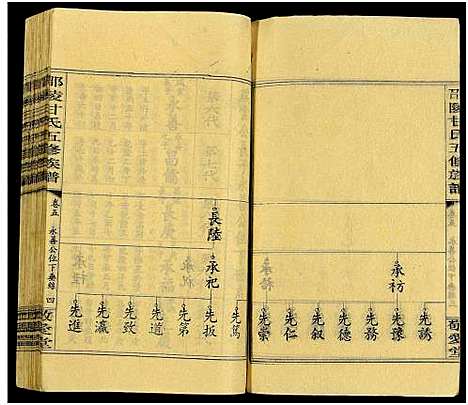 邵陵甘氏五修族譜
敬愛堂
承祊
先誘
先豫
先務
先德
先敘
先仁
先榮
長陸
承祀
先篤
先振
先第
先道
先致
先瀛
先進
邵陵甘氏五修族譜
卷五
永善公位下垂絲
四
敬愛堂